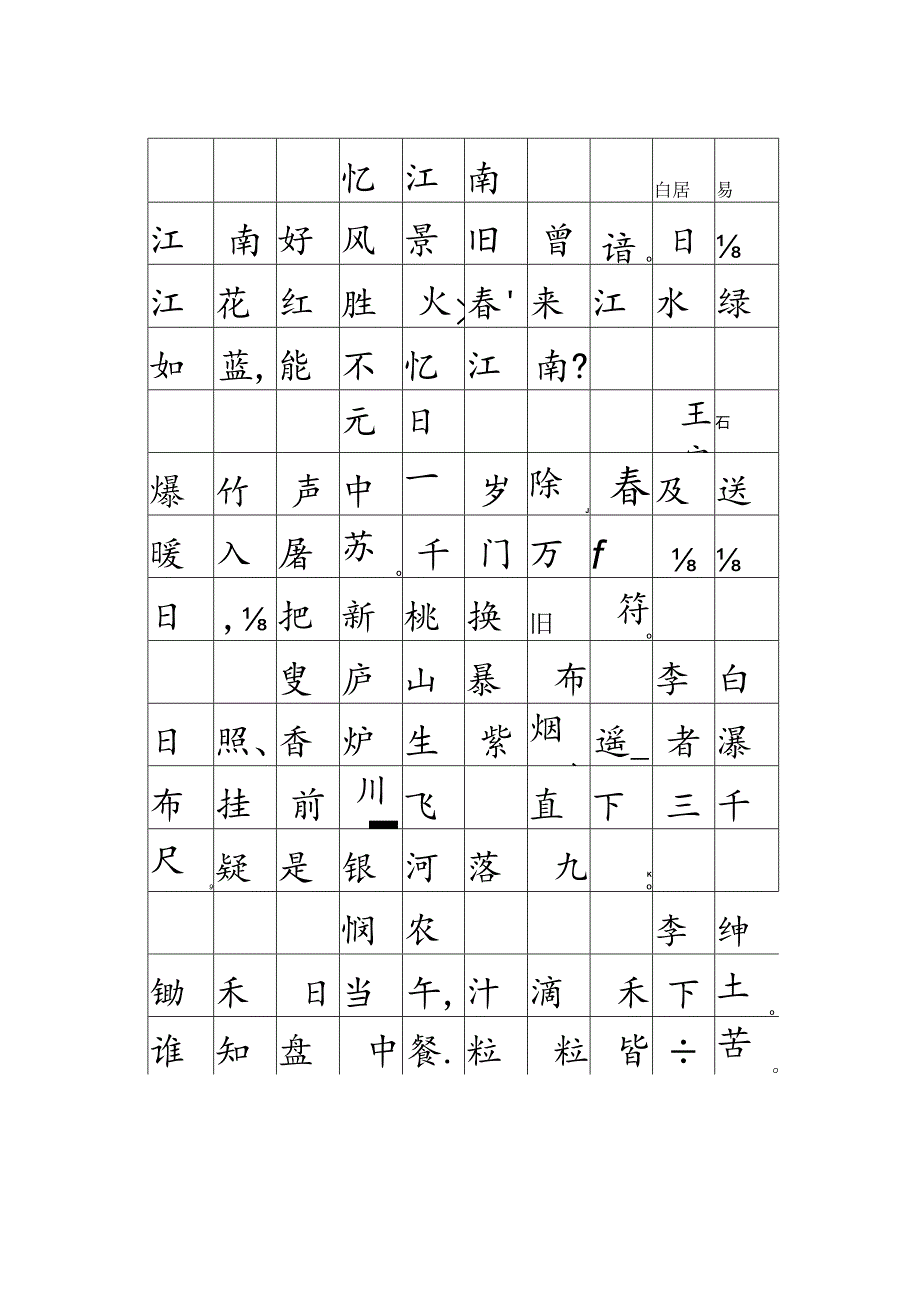 忆江南 白居易
江南好风景旧曾谙。日⅛
江花红胜火、春'来江水绿
如蓝,能不忆江南?
元日 王石
爆竹声中一岁除,春及送
暖入屠苏。千门万f⅛⅛
日,⅛把新桃换旧符。
叟庐山暴布 李白
日照、香炉生紫烟、遥_者瀑
布挂前川飞直下三千
尺,疑是银河落九κ。
悯农 李绅
锄禾日当午,汁滴禾下土。
谁知盘中餐.粒粒皆÷苦。